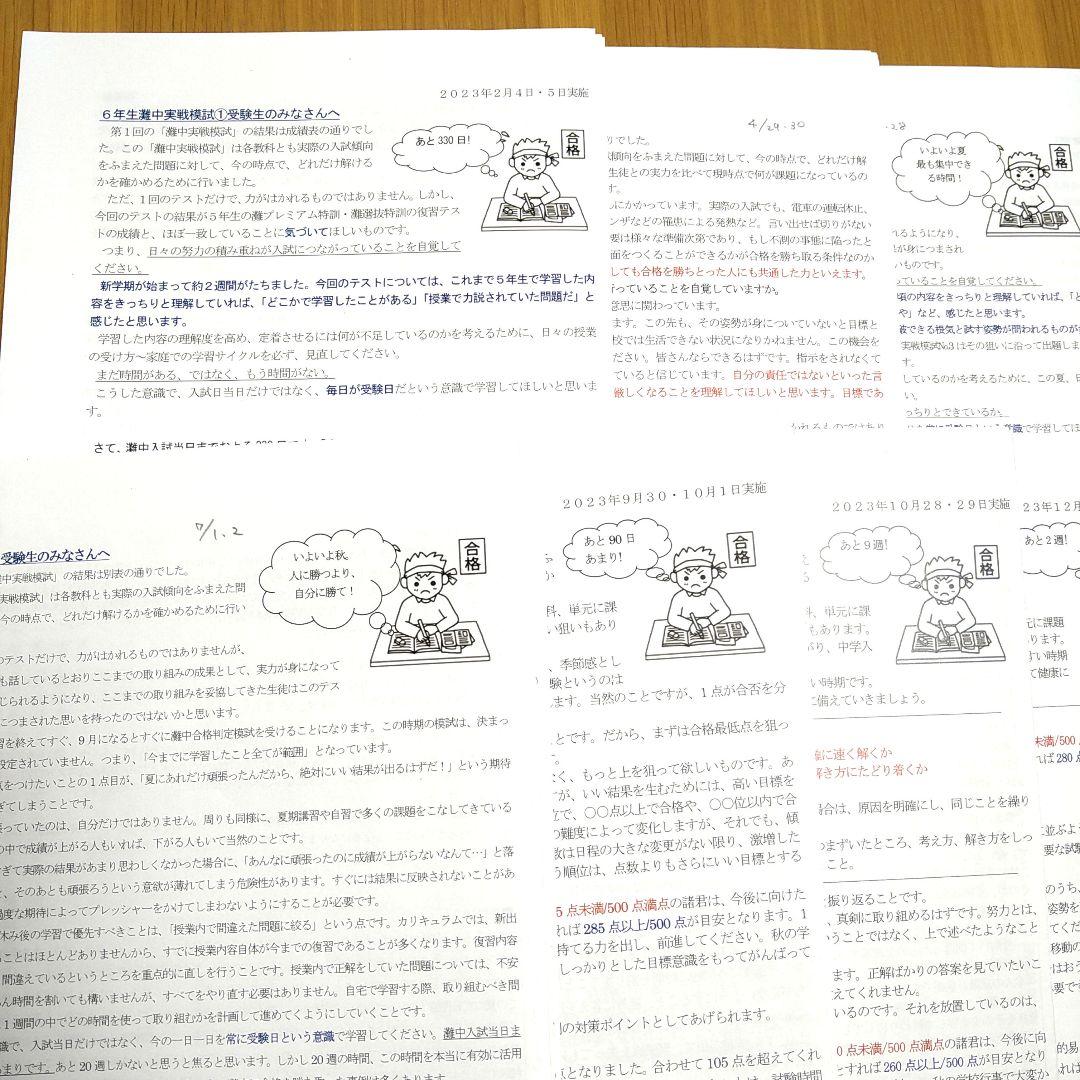 2023年2月4日・5日実施
6年生灘中実戦模試①受験生のみなさんへ
第1回の「灘中実戦模試」の結果は成績表の通りでし
た。この「灘中実戦模試」は各教科とも実際の入試傾向
をふまえた問題に対して、今の時点で、どれだけ解ける
かを確かめるために行いました。
ただ、1回のテストだけで、力がはかれるものではありません。しかし、
今回のテストの結果が5年生の灘プレミアム特訓・灘選抜特訓の復習テス
トの成績と、ほぼ一致していることに気づいてほしいものです。
つまり、日々の努力の積み重ねが入試につながっていることを自覚して
ください。
新学期が始まって約2週間がたちました。今回のテストについては、これまで5年生で学習した内
容をきっちりと理解していれば、「どこかで学習したことがある」「授業で力説されていた問題だ」と
感じたと思います。
学習した内容の理解度を高め、定着させるには何が不足しているのかを考えるために、日々の授業
の受け方～家庭での学習サイクルを必ず、見直してください。
まだ時間がある、ではなく、もう時間がない。
こうした意識で、入試日当日だけではなく、毎日が受験日だという意識で学習してほしいと思いま
す。
あと330日!
合格
4/29.30
りでした。
傾向をふまえた問題に対して、今の時点で、どれだけ解
生徒との実力を比べて現時点で何が課題になっているの
す。
にかかっています。実際の入試でも、電車の運転休止、
ンザなどの罹患による発熱など。言い出せば切りがない
要は様々な準備次第であり、もし不測の事態に陥ったと
面をつくることができるかが合格を勝ち取る条件なのか
しても合格を勝ちとった人にも共通した力といえます。
っていることを自覚していますか。
意思に関わっています。
ます。この先も、その姿勢が身についていないと目標と
校では生活できない状況になりかねません。この機会を
ださい。皆さんならできるはずです。指示をされなくて
ていると信じています。自分の責任ではないといった言
厳しくなることを理解してほしいと思います。目標であ
.28
いよいよ夏
最も集中でき
る時間!
合格
れるようになり、
が身につまされ
いものです。
っていることを自覚してください。
頃の内容をきっちりと理解していれば、「と
や」など、感じたと思います。
できる根気と試す姿勢が問われるものが
実戦模試№3はその狙いに沿って出題しま
す。
しているのかを考えるために、この夏、日
い。
っちりとできているか。
7/1、2
受験生のみなさんへ
中実戦模試」の結果は別表の通りでした。
実戦模試」は各教科とも実際の入試傾向をふまえた問
今の時点で、どれだけ解けるかを確かめるために行い
のテストだけで、力がはかれるものではありませんが、
も話しているとおりここまでの取り組みの成果として、実力が身になって
じられるようになり、ここまでの取り組みを妥協してきた生徒はこのテス
につまされた思いを持ったのではないかと思います。
習を終えてすぐ、9月になるとすぐに灘中合格判定模試を受けることになります。この時期の模試は、決まっ
設定されていません。つまり、「今までに学習したこと全てが範囲」となっています。
気をつけたいことの1点目が、「夏にあれだけ頑張ったんだから、絶対にいい結果が出るはずだ!」という期待
ぎてしまうことです。
張っていたのは、自分だけではありません。周りも同様に、夏期講習や自習で多くの課題をこなしてきている
の中で成績が上がる人もいれば、下がる人もいて当然のことです。
すぎて実際の結果があまり思わしくなかった場合に、「あんなに頑張ったのに成績が上がらないなんて…」と落
、そのあとも頑張ろうという意欲が薄れてしまう危険性があります。すぐには結果に反映されないことがあ
過度な期待によってプレッシャーをかけてしまわないようにすることが必要です。
休み後の学習で優先すべきことは、「授業内で間違えた問題に絞る」という点です。カリキュラムでは、新出
ることはほとんどありませんから、すでに授業内容自体が今までの復習であることが多くなります。復習内容
間違えているというところを重点的に直しを行うことです。授業内で正解をしていた問題については、不安
ん時間を割いても構いませんが、すべてをやり直す必要はありません。自宅で学習する際、取り組むべき問
1週間の中でどの時間を使って取り組むかを計画して進めてくようにしていくことです。
識で、入試日当日だけではなく、今の一日一日を常に受験日という意識で学習してください。灘中入試当日ま
まりです。あと20週しかないと思うと焦ると思います。しかし20週の時間、この時間を本当に有効に活用
いよいよ秋。
人に勝つより、
自分に勝て!
合格
2023年9月30・10月1日実施
あと90日
あまり!
合格
科、単元に課
い狙いもあり
、季節感とし
験というのは
ます。当然のことですが、1点が合否を分
ことです。だから、まずは合格最低点を狙っ
く、もっと上を狙って欲しいものです。あ
が、いい結果を生むためには、高い目標を
で、〇〇点以上で合格や、〇〇位以内で合
の難度によって変化しますが、それでも、傾
数は日程の大きな変更がない限り、激増した
う順位は、点数よりもさらにいい目標とする
5点未満/500点満点の諸君は、今後に向けた
れば285点以上/500点が目安となります。1
持てる力を出し、前進してください。秋の学
しっかりとした目標意識をもってがんばって
の対策ポイントとしてあげられます。
点となりました。合わせて105点を超えてくれ
2023年10月28・29日実施
あと9週!
合格
科、単元に課
もあります。
がり、中学入
い時期です。
に備えていきましょう。
に速く解くか
解き方にたどり着くか
場合は、原因を明確にし、同じことを繰り
つまずいたところ、考え方、解き方をしっ
こと。
振り返ることです。
、真剣に取り組めるはずです。努力とは、
いうことではなく、上で述べたようなこと
ます。正解ばかりの答案を見ていたいこ
えてくれません。
いるのです。それを放置しているのは、
0点未満/500点満点の諸君は、今後に向
れば260点以上/500点が目安となり
23年12月
あと2週!
元に課題
ります。
すい時期
て健康に
未満/500
れば280点
に並ぶよ
要な試験
のうち、
姿勢を
てくだ
移動の
はおう
要です